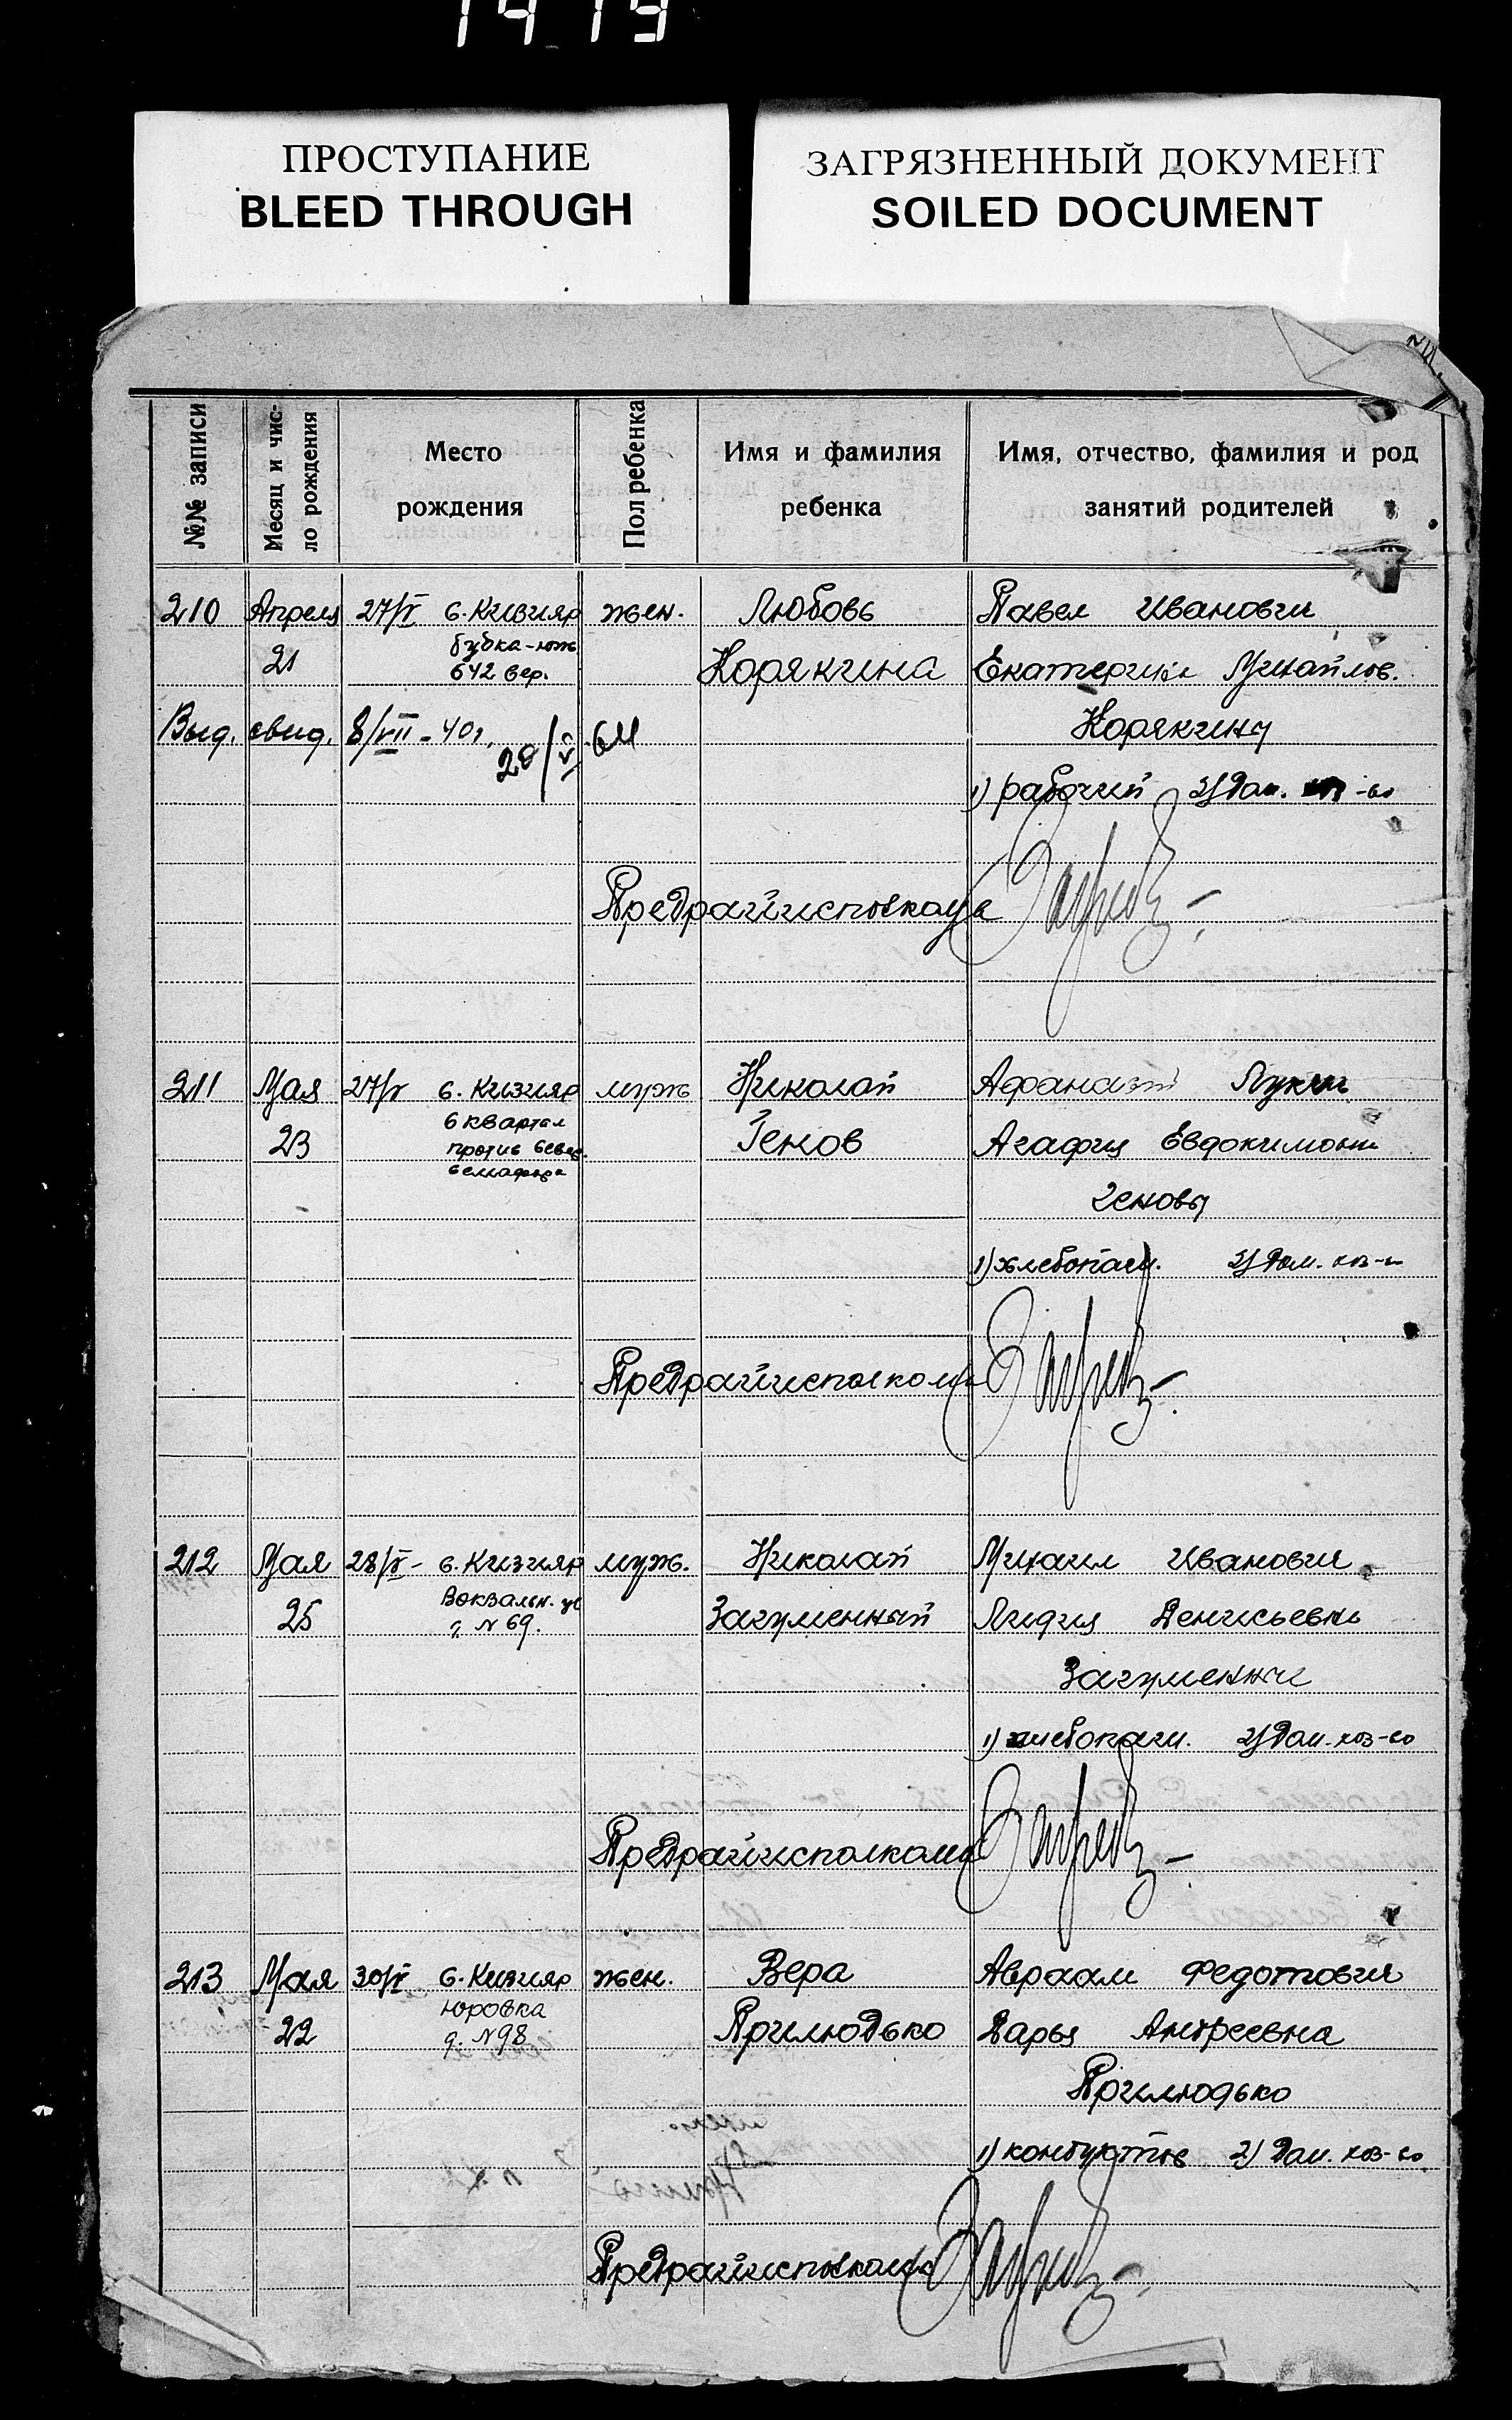 1419
ПРОСТУПАНИЕ
BLEED THROUGH
ЗАГРЯЗНЕННЫЙ ДОКУМЕНТ
SOILED DOCUMENT
№№ записи
Месяц и чис-
ло рождения
Место
рождения
Пол ребенка
Имя и фамилия
ребенка
Имя, отчество, фамилия и род
занятий родителей
210 Апреля 27/V с. Кизияр жен. Любовь Павел Иванович
будка-юж
21 642 вер. Корякина Екатерина Михайлов.
Выд. свид. 8/VII-40г. Корякины
28/VI 64
1) рабочий 2) Дом. -во
Предрайисполкома
211 Мая 27/V с. Кизияр муж Николай Афанасий Лукич
6 квартал
23 против север. Генов Агафия Евдокимовн
семафора
Геновы
1) хлебопаш. 2) Дом. хоз-во
Предрайисполкома
212 Мая 28/V- с. Кизияр муж. Николай Михаил Иванович
Вокзальн. ул
25 д. N 69. Загуменный Лидия Денисьевна
Загуменные
1) хлебопаш. 2) Дом. хоз-во
Предрайисполкома
213 Мая 30/V с. Кизияр жен. Вера Авраам Федотович
Юровка
22 д. N 98 Прилюдько Дарья Андреевна
Прилюдько
1) кондуктор 2) Дом. хоз-во
Предрайисполкома